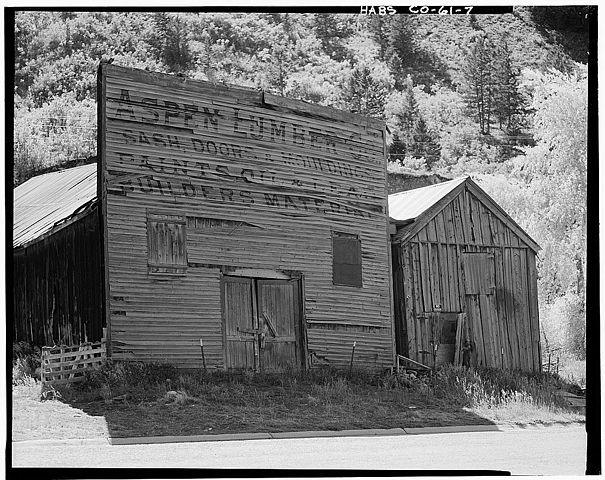 HABS CO-61-7
ASPEN LUMBER Co.
SASH, DOORS & MOULDINGS
PAINTS, OILS &
BUILDERS MATERIAL